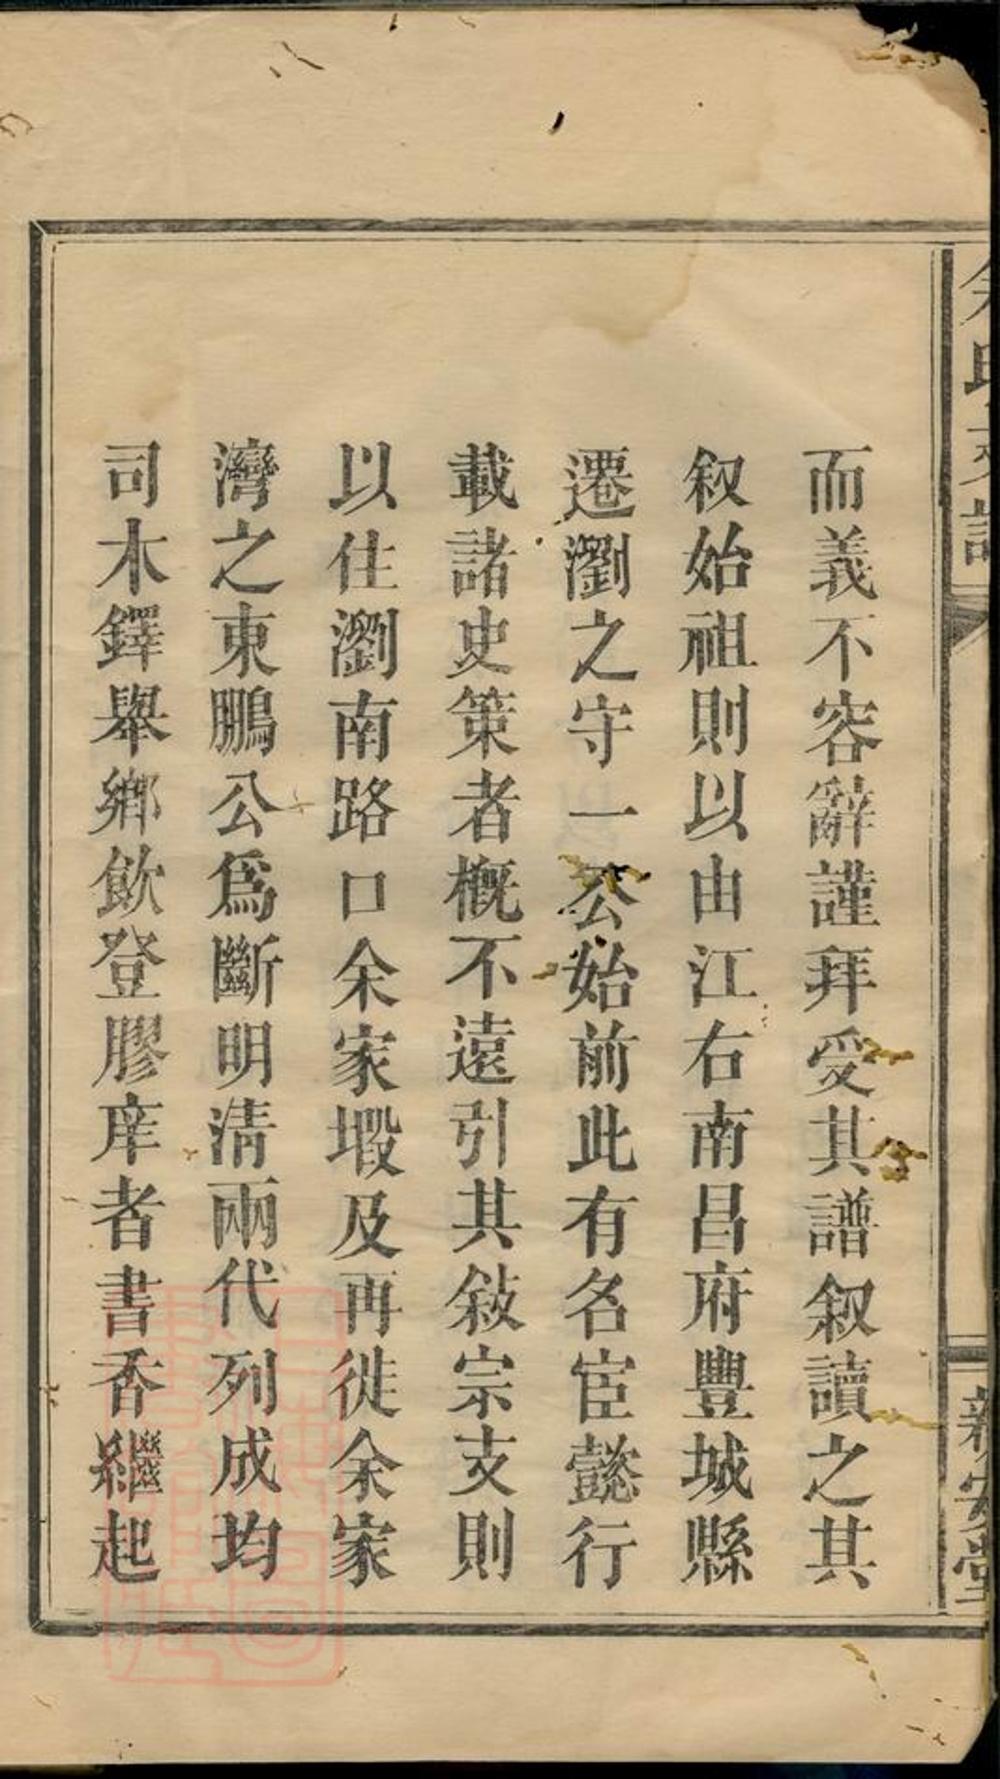 而義不容辭謹拜受其譜叙讀之其
叙始祖則以由江右南昌府豐城縣
遷瀏之守一公始前此有名宦懿行
載諸史策者槪不遠引其敍宗支則
以住瀏南路口余家塅及再徙余家
灣之東鵬公爲斷明清兩代列成均
司木鐸舉鄉飲登膠庠者書香繼起
余氏支譜
新安堂